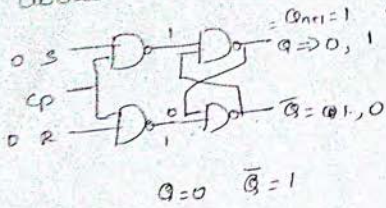 = Qn+1 = 1
0 S 1 Q => 0, 1
CP
0 R 0 1 Q̅ = 1, 0
Q = 0 Q̅ = 1